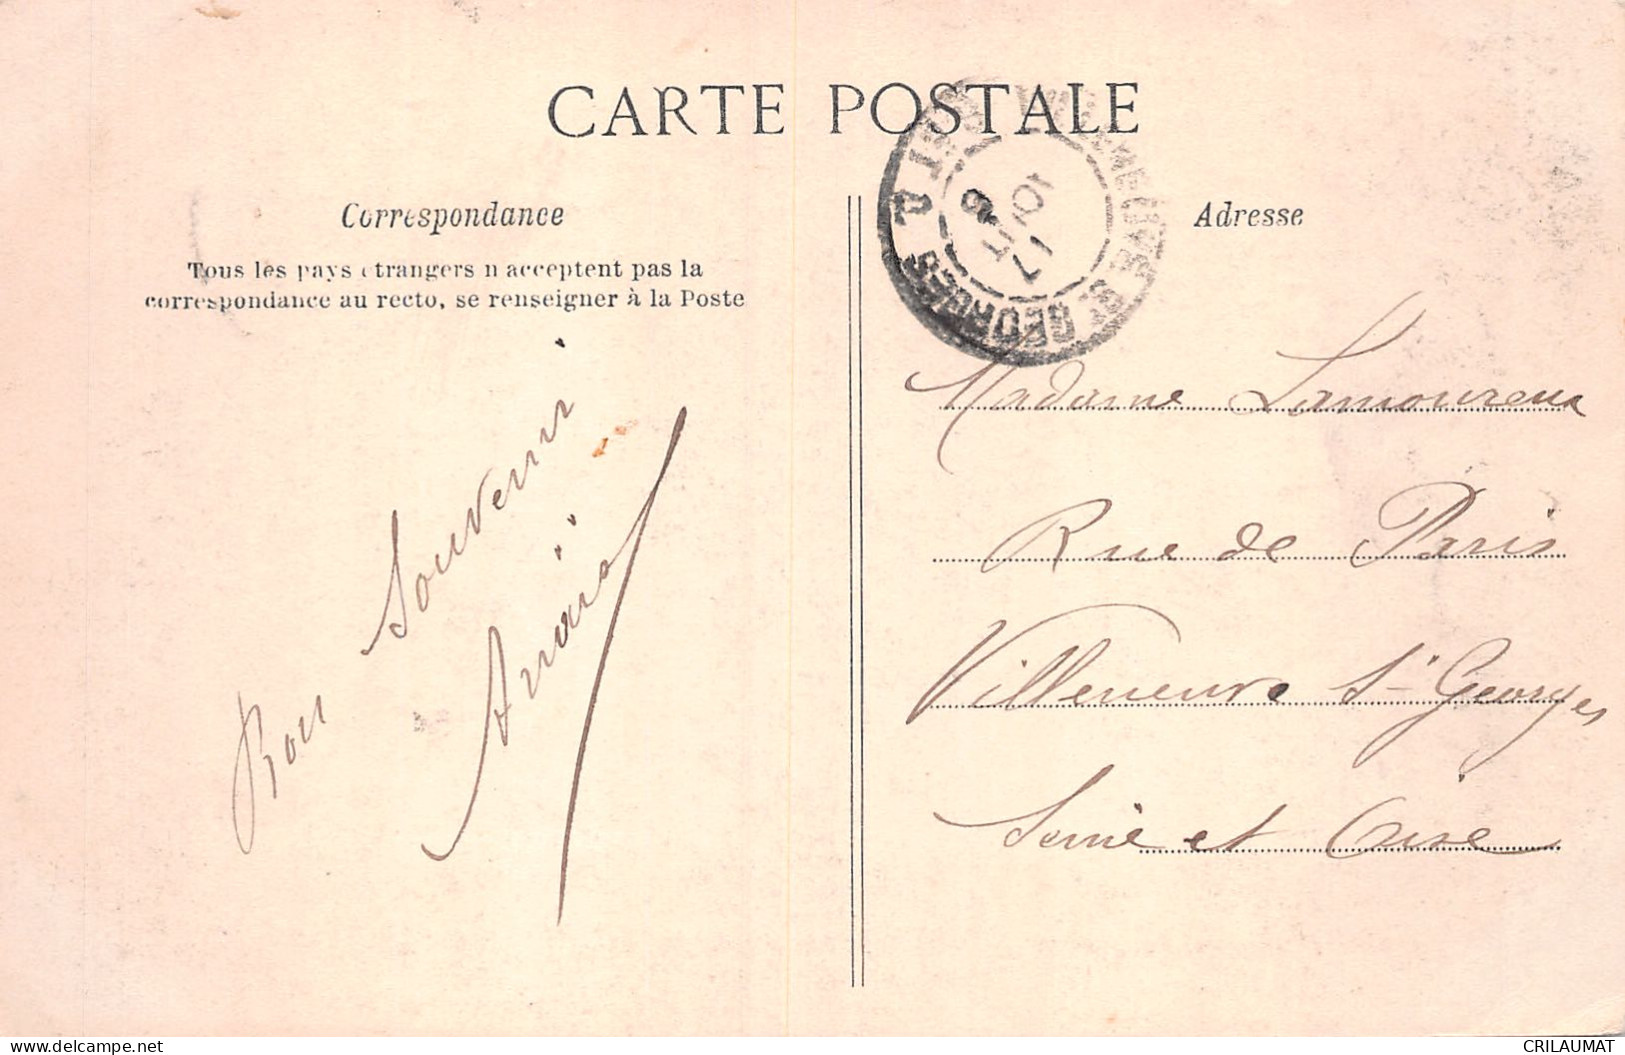 CARTE POSTALE
Correspondance
Tous les pays étrangers n acceptent pas la
correspondance au recto, se renseigner à la Poste
Bon Souvenir
Adresse
VILLENEUVE ST GEORGES
Madame Lamoureux
Rue de Paris
Villeneuve St Georges
Seine et Oise
CRILAUMAT